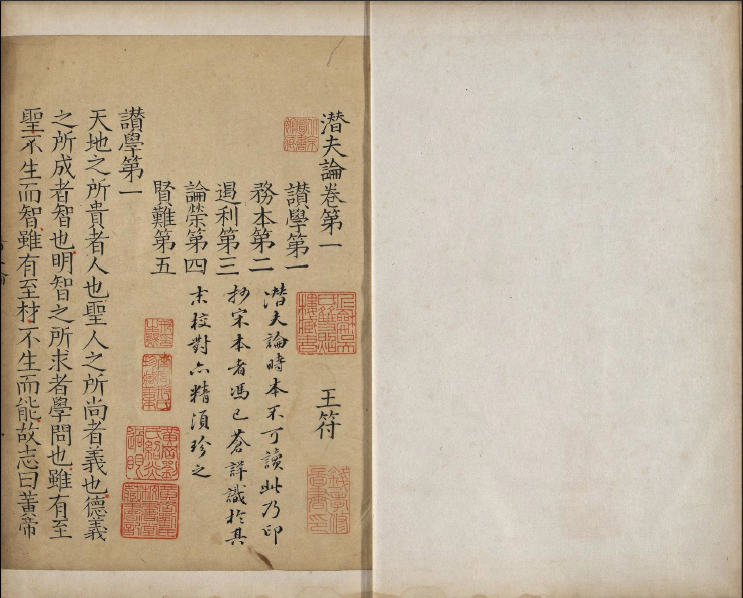 潛夫論卷第一
王符
讚學第一
務本第二
遏利第三
論榮第四
賢難第五
潛夫論時本不可讀此乃印
抄宋本者馮已蒼詳識於其
末校對亦精須珍之
讚學第一
天地之所貴者人也聖人之所尚者義也德義
之所成者智也明智之所求者學問也雖有至
聖不生而智雖有至材不生而能故志曰黃帝